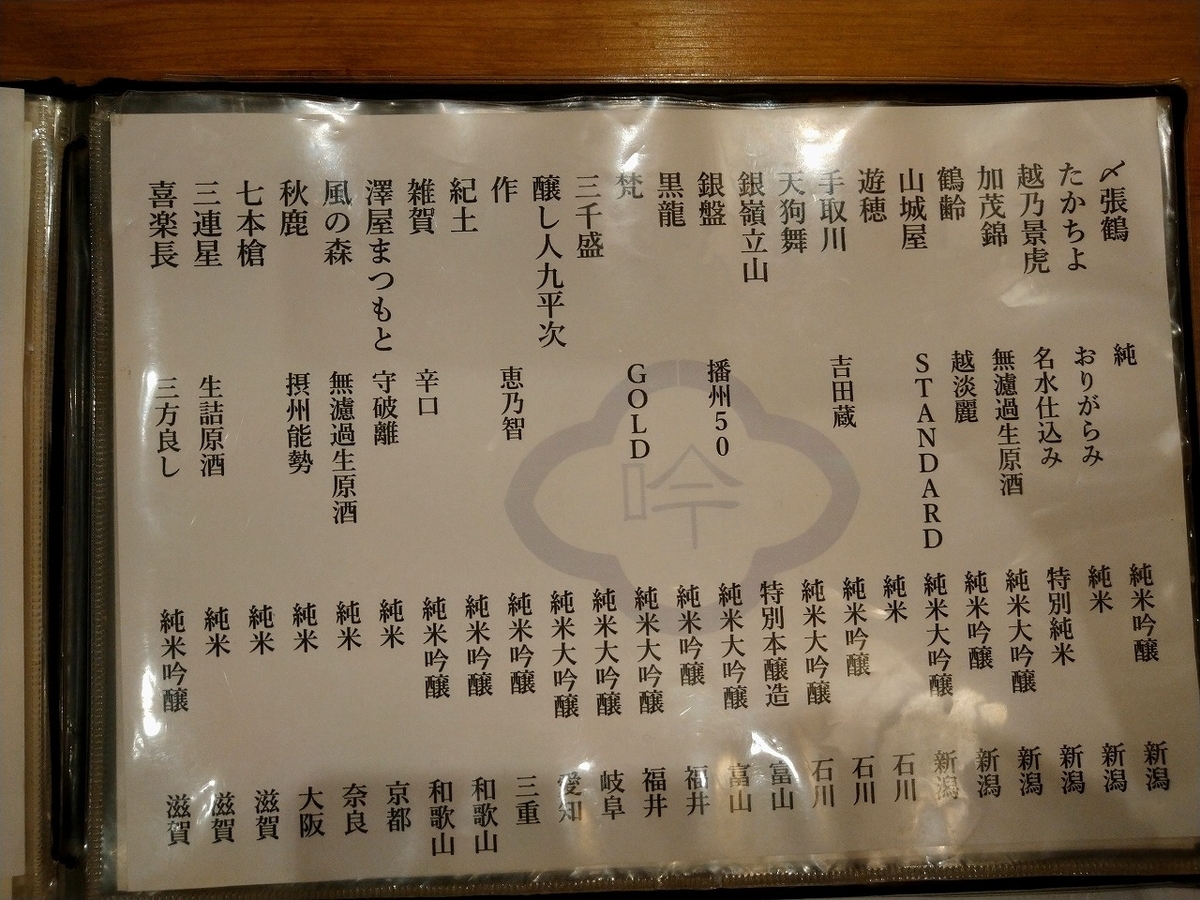 〆張鶴 純 純米吟醸 新潟
たかちよ おりがらみ 純米 新潟
越乃景虎 名水仕込み 特別純米 新潟
加茂錦 無濾過生原酒 純米大吟醸 新潟
鶴齢 越淡麗 純米吟醸 新潟
山城屋 STANDARD 純米大吟醸 新潟
遊穂 純米 石川
手取川 吉田蔵 純米吟醸 石川
天狗舞 純米大吟醸 石川
銀嶺立山 特別本醸造 富山
銀盤 播州50 純米大吟醸 富山
黒龍 純米吟醸 福井
梵 GOLD 純米大吟醸 福井
三千盛 純米大吟醸 岐阜
醸し人九平次 純米大吟醸 愛知
作 恵乃智 純米吟醸 三重
紀土 純米吟醸 和歌山
雑賀 辛口 純米吟醸 和歌山
澤屋まつもと 守破離 純米 京都
風の森 無濾過生原酒 純米 奈良
秋鹿 摂州能勢 純米 大阪
七本槍 純米 滋賀
三連星 生詰原酒 純米 滋賀
喜楽長 三方良し 純米吟醸 滋賀
吟